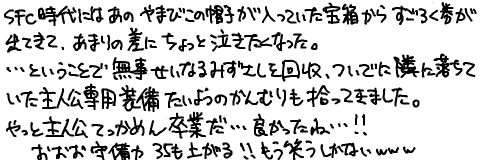 SFC時代にはあの やまびこの帽子が入っていた宝箱から すごろく券が
出てきて、あまりの差に ちょっと泣きたくなった。
…ということで 無事せいなるみずさしを回収、ついでに 隣に落ちて
いた主人公専用装備 たいようのかんむりも拾ってきました。
やっと主人公てっかめん 卒業だ…良かったね…!!
おおお 守備力 35も上がる!!もう笑うしかないwww